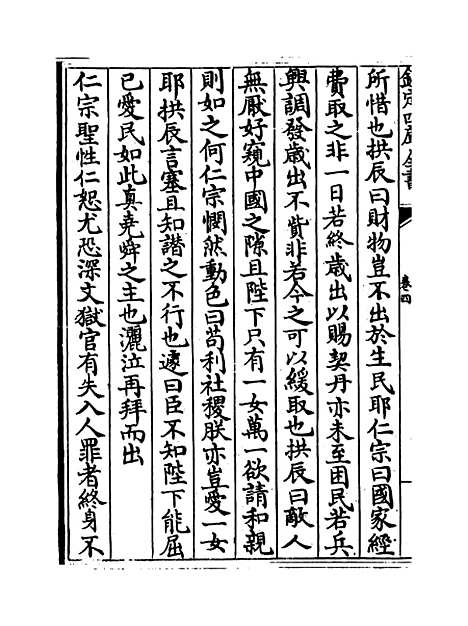 欽定四庫全書
卷四
所惜也拱辰曰財物豈不出於生民耶仁宗曰國家經
費取之非一日若終歲出以賜契丹亦未至困民若兵
興調發歲出不貲非若今之可以緩取也拱辰曰敵人
無厭好窺中國之隙且陛下只有一女萬一欲請和親
則如之何仁宗憫然動色曰苟利社稷朕亦豈愛一女
耶拱辰言塞且知譖之不行也遽曰臣不知陛下能屈
已愛民如此真堯舜之主也灑泣再拜而出
仁宗聖性仁恕尤恐深文獄官有失入人罪者終身不